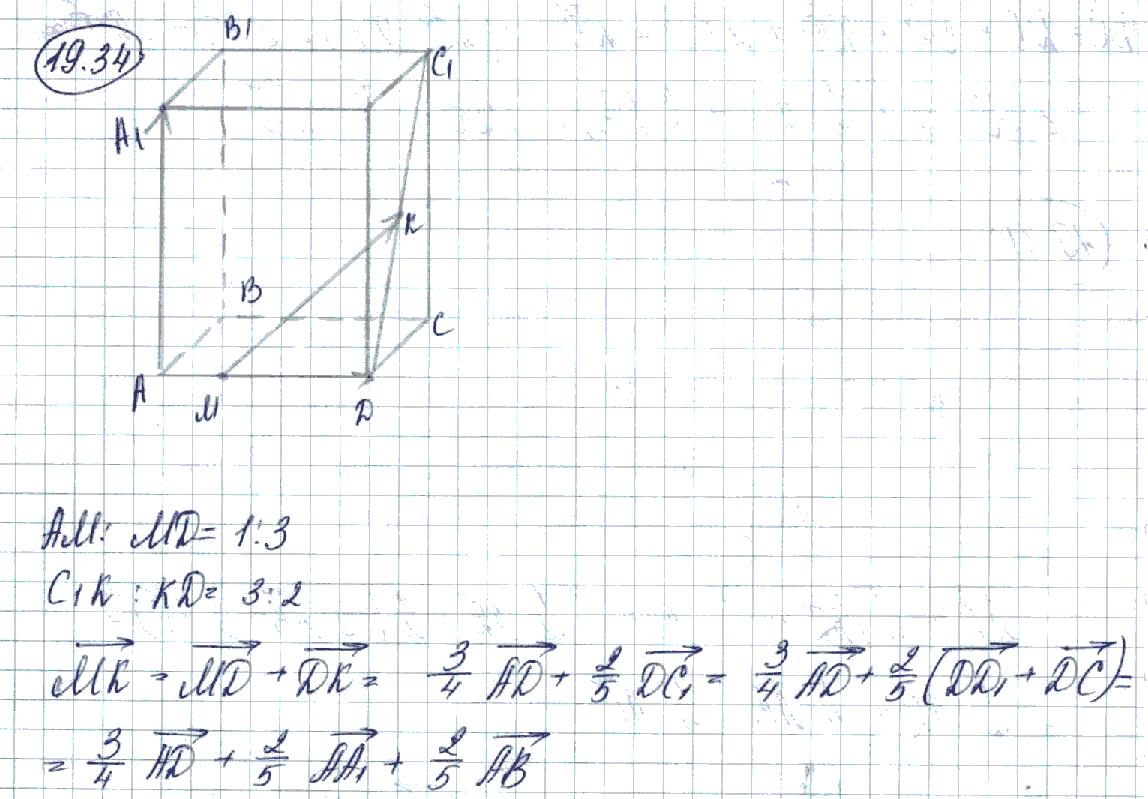 19.34
B1
C1
A1
K
B
C
A
M
D
AM : MD = 1:3
C1K : KD = 3:2
→MK = →MD + →DK = 3/4 →AD + 2/5 →DC1 = 3/4 →AD + 2/5 (→DD1 + →DC) =
= 3/4 →AD + 2/5 →AA1 + 2/5 →AB